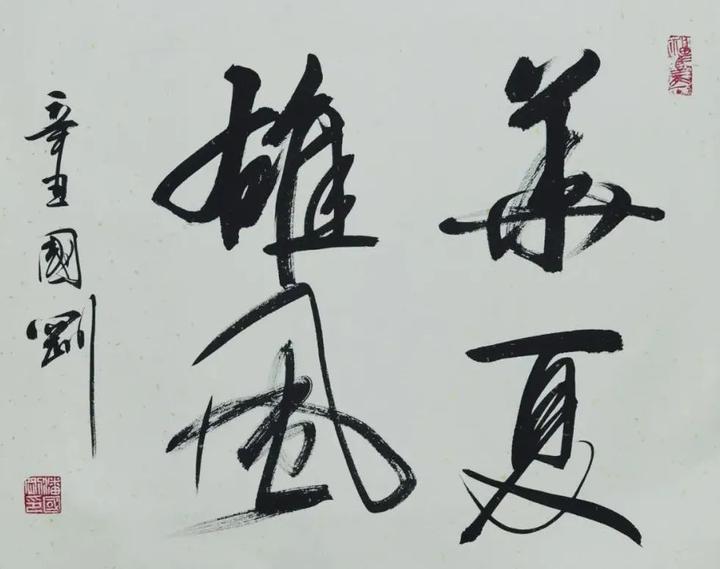 華夏
雄風
辛丑國剛